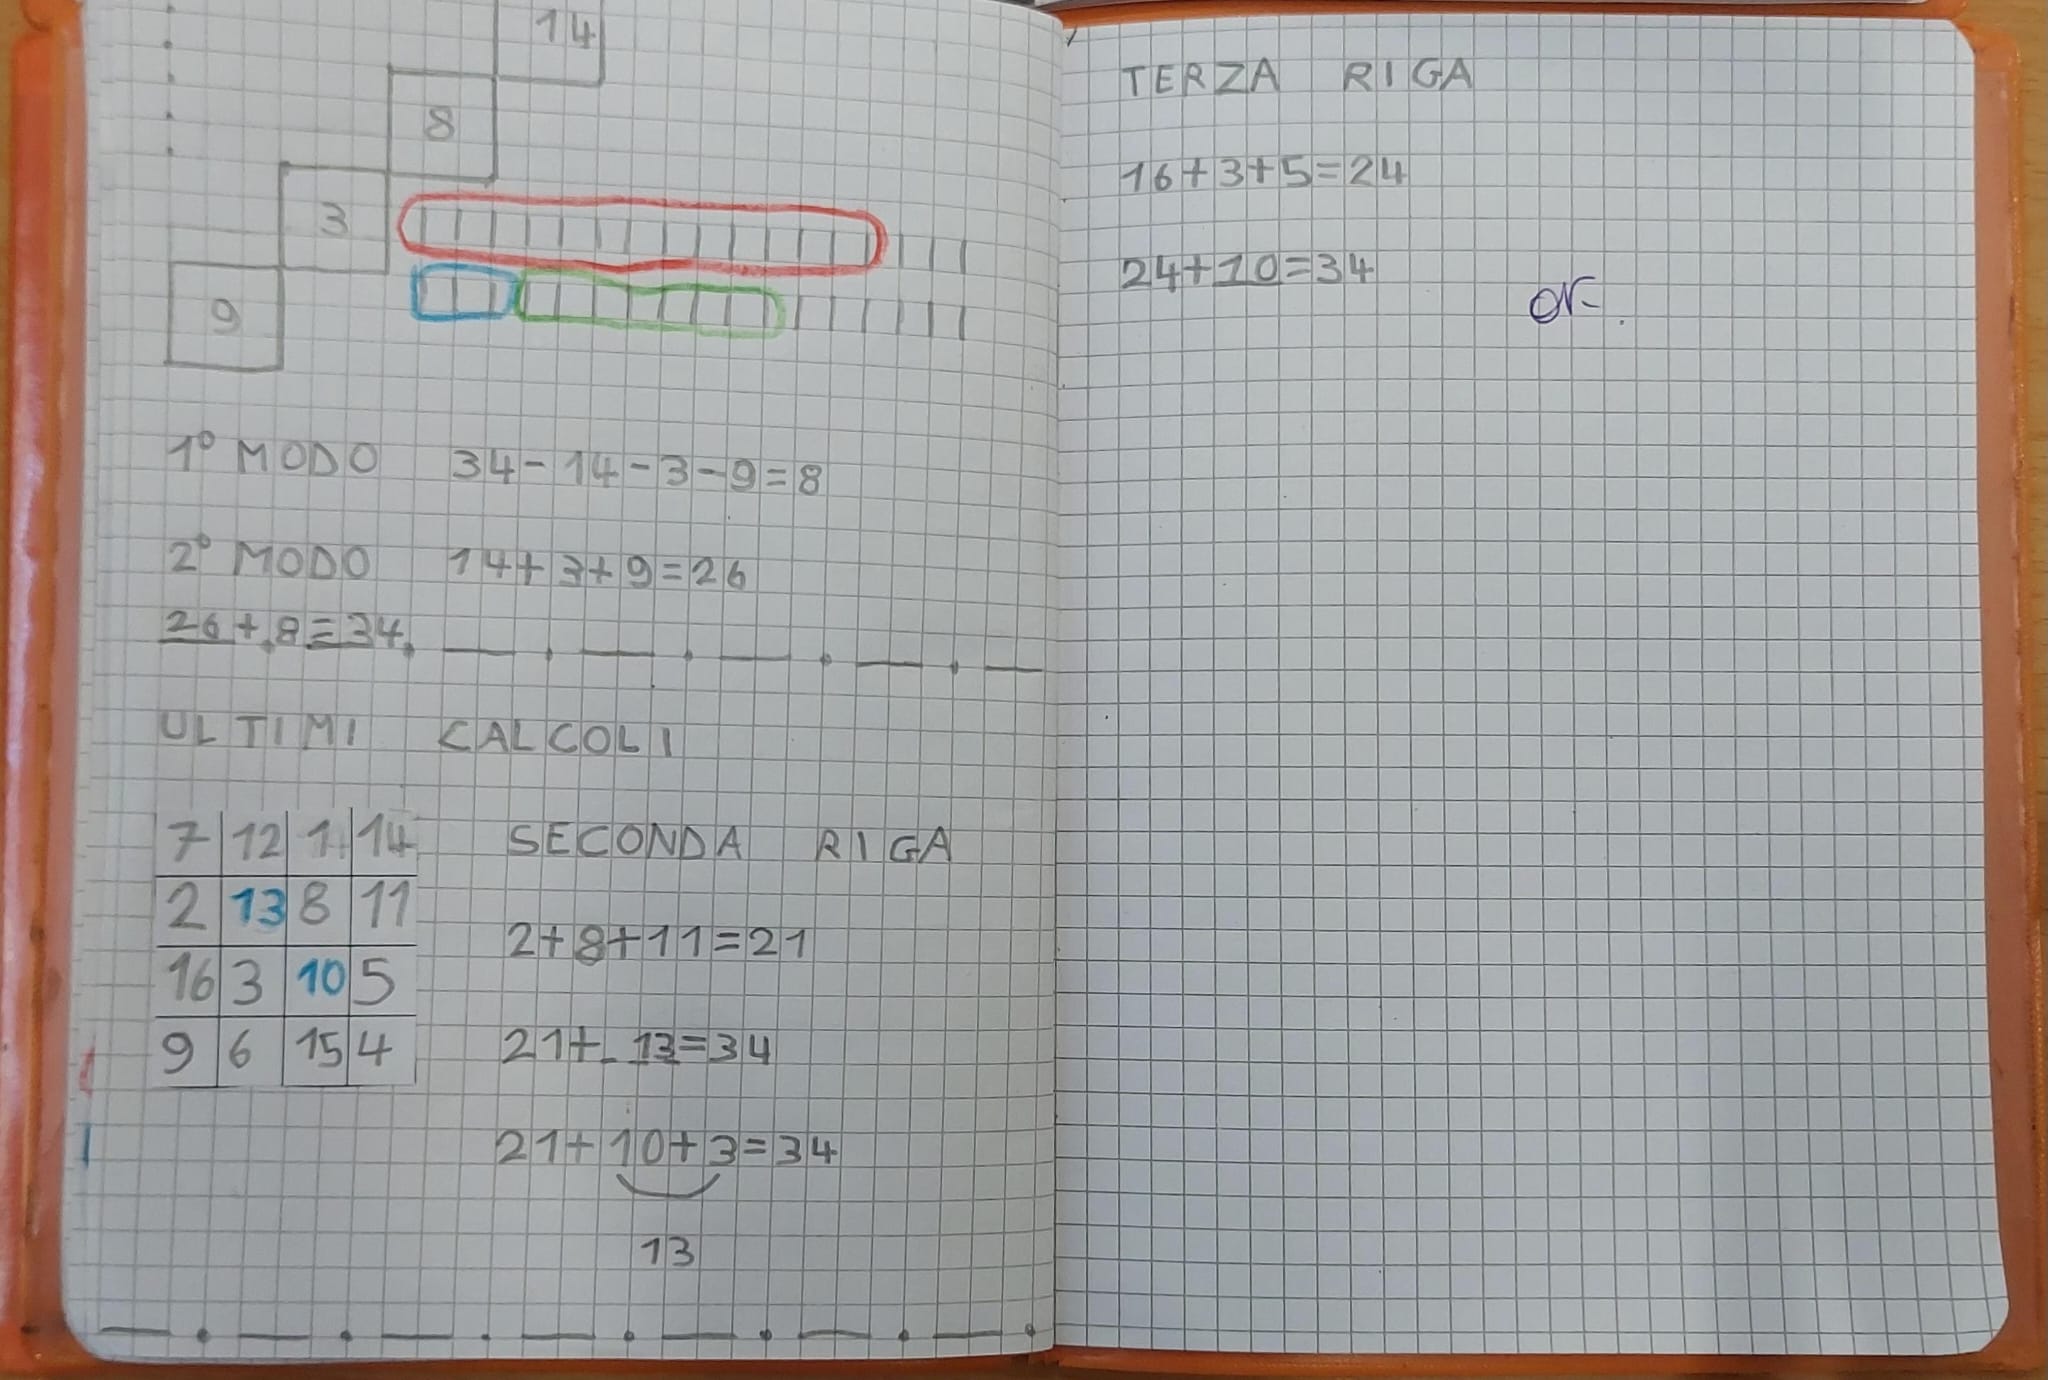 14
8
3
9
1° MODO 34-14-3-9=8
2° MODO 14+3+9=26
26+8=34
ULTIMI CALCOLI
7 12 1 14
2 13 8 11
16 3 10 5
9 6 15 4
SECONDA RIGA
2+8+11=21
21+13=34
21+10+3=34
13
TERZA RIGA
16+3+5=24
24+10=34